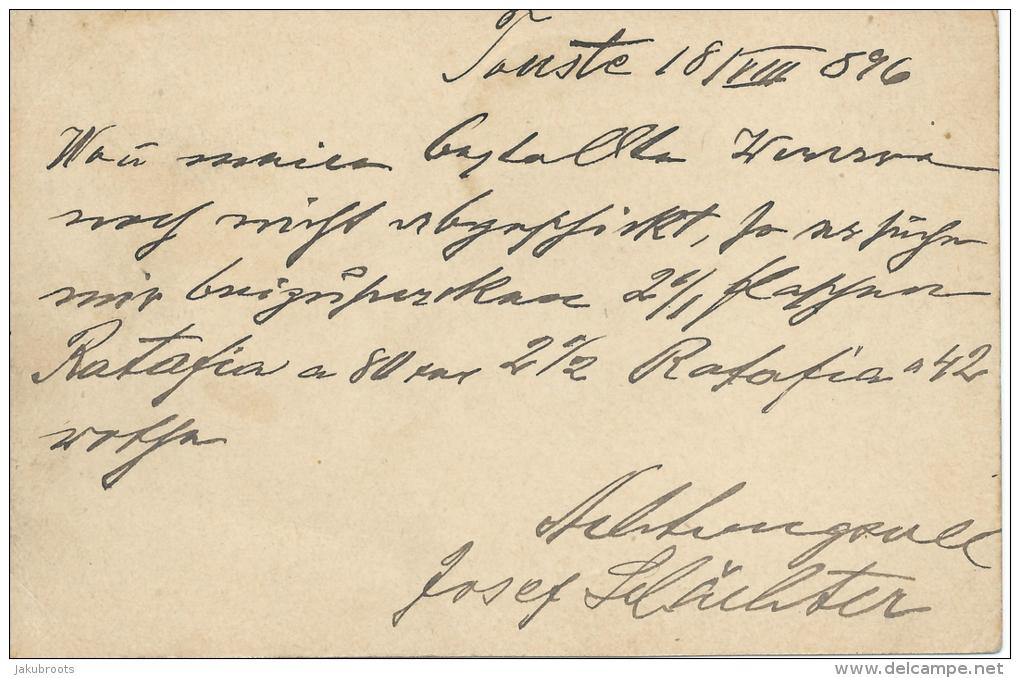 Touste 18/VIII 896
Wen meine bestellte Waare
noch nicht abgeschickt, so ersuche
mir beizupacken 2 1/1 Flaschen
Ratafia a 80 2 1/2 Ratafia a 42
rothe
Achtungsvoll
Josef Schächter
jakubroots
www.delcampe.net